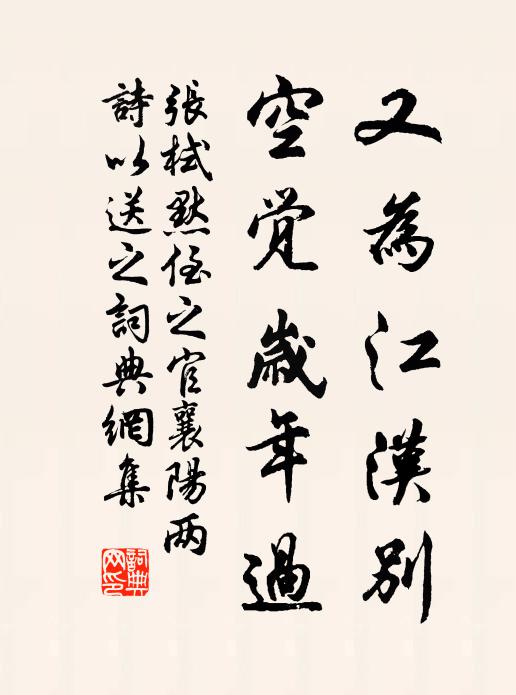 又為江漢別
空覺歲年過
張栻默侄之官襄陽两
詩以送之詞典網集
詞典
网印